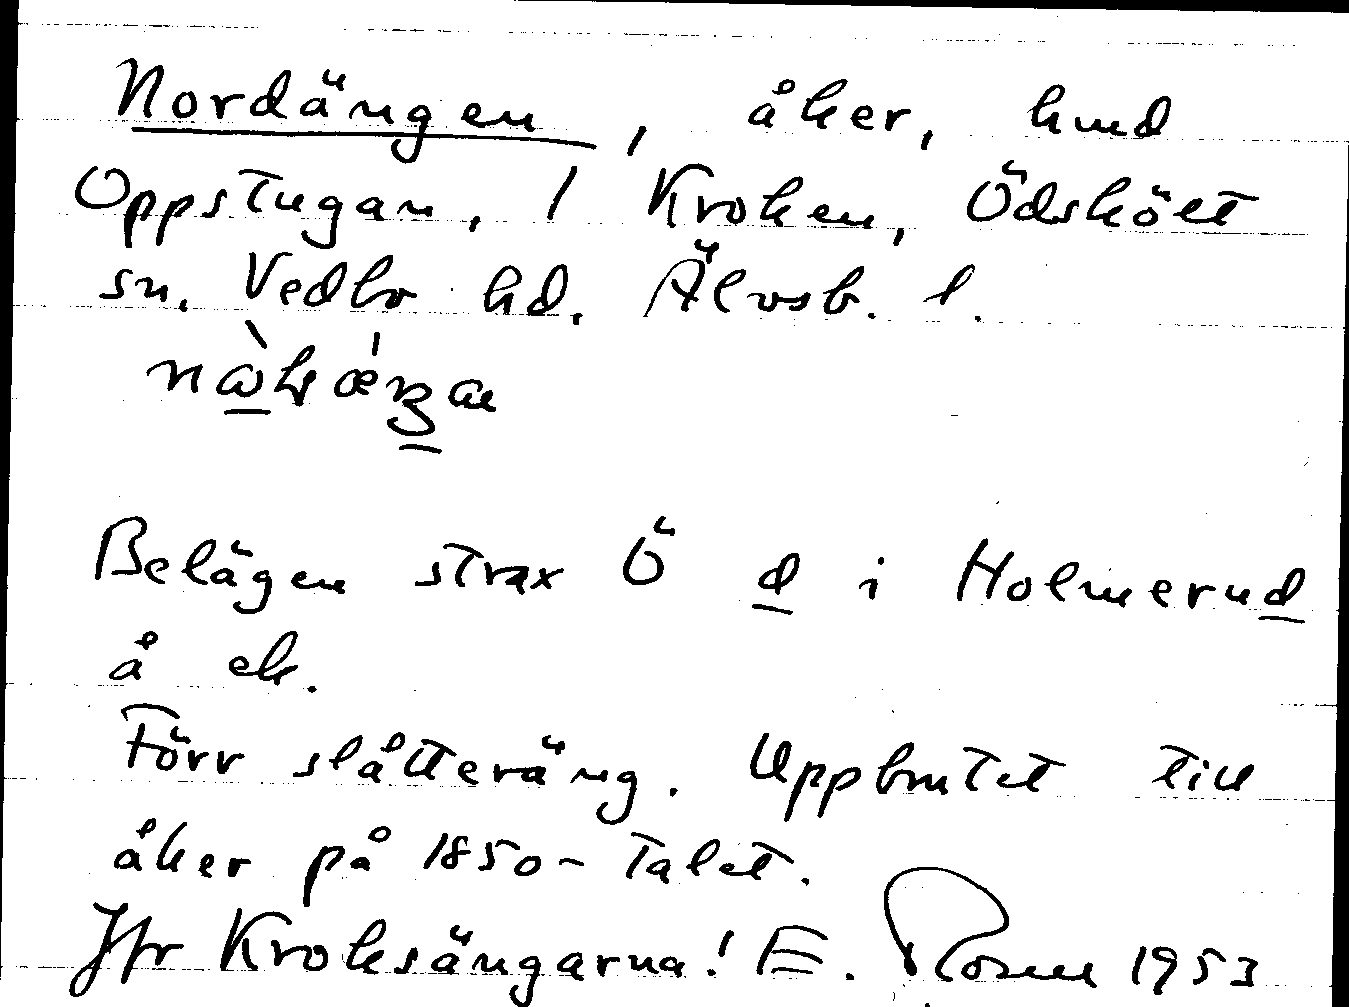 Nordängen, åker, hmd
Oppstugan, 1 Kroken, Ödskölt
sn. Vedbo hd. Älvsb. l.
Belägen strax Ö d i Holmerud
å ek.
Förr slåtteräng. Uppbrutet till
åker på 1850-talet.
Jfr Kroksängarna! E. Rosell 1953